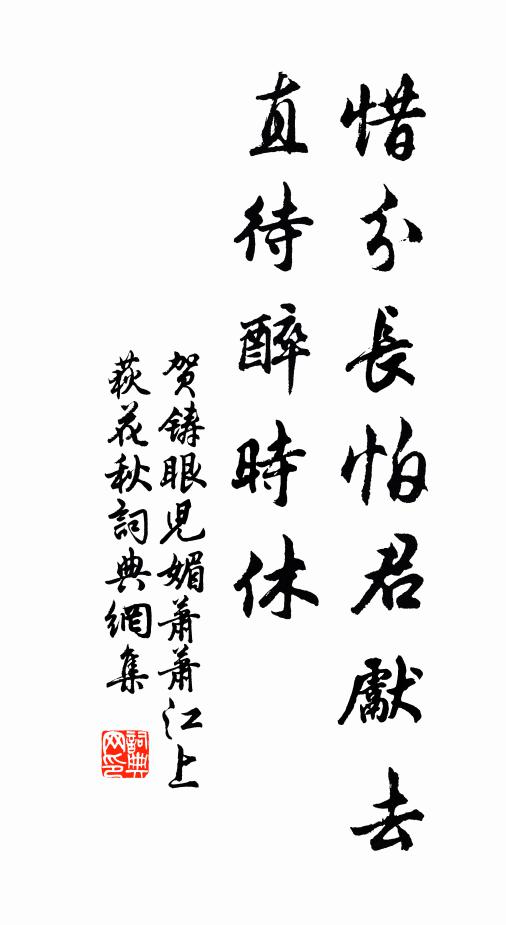 惜分長怕君獻去
直待醉時休
贺铸眼児媚蕭蕭江上
荻花秋詞典網集
詞典网印